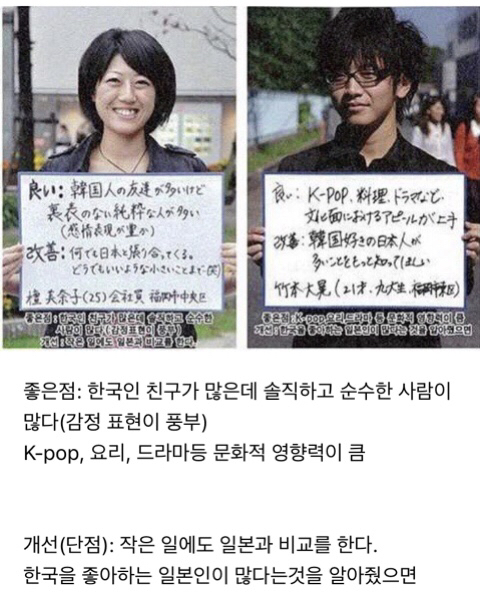 良い: 韓国人の友達が多いけど
裏表のない純粋な人が多い
(感情表現が豊か)
改善: 何でも日本と張り合ってくる。
どうでもいいような小さいことまで(笑)
美奈子(25) 会社員 福岡市中央区
좋은점: 한국인 친구가 많은데 솔직하고 순수한
사람이 많다(감정표현이 풍부)
개선: 작은 일에도 일본과 비교를 한다.
良い: K-POP、料理、ドラマなど、
文化面におけるアピールが上手
改善: 韓国好きの日本人が
多いことをもっと知ってほしい
竹本大晃(21才、九大生、福岡市東区)
좋은점: K-pop,요리,드라마 등 문화적 영향력이 큼
개선: 한국을 좋아하는 일본인이 많다는 것을 알아줬으면
좋은점: 한국인 친구가 많은데 솔직하고 순수한 사람이
많다(감정 표현이 풍부)
K-pop, 요리, 드라마등 문화적 영향력이 큼
개선(단점): 작은 일에도 일본과 비교를 한다.
한국을 좋아하는 일본인이 많다는것을 알아줬으면